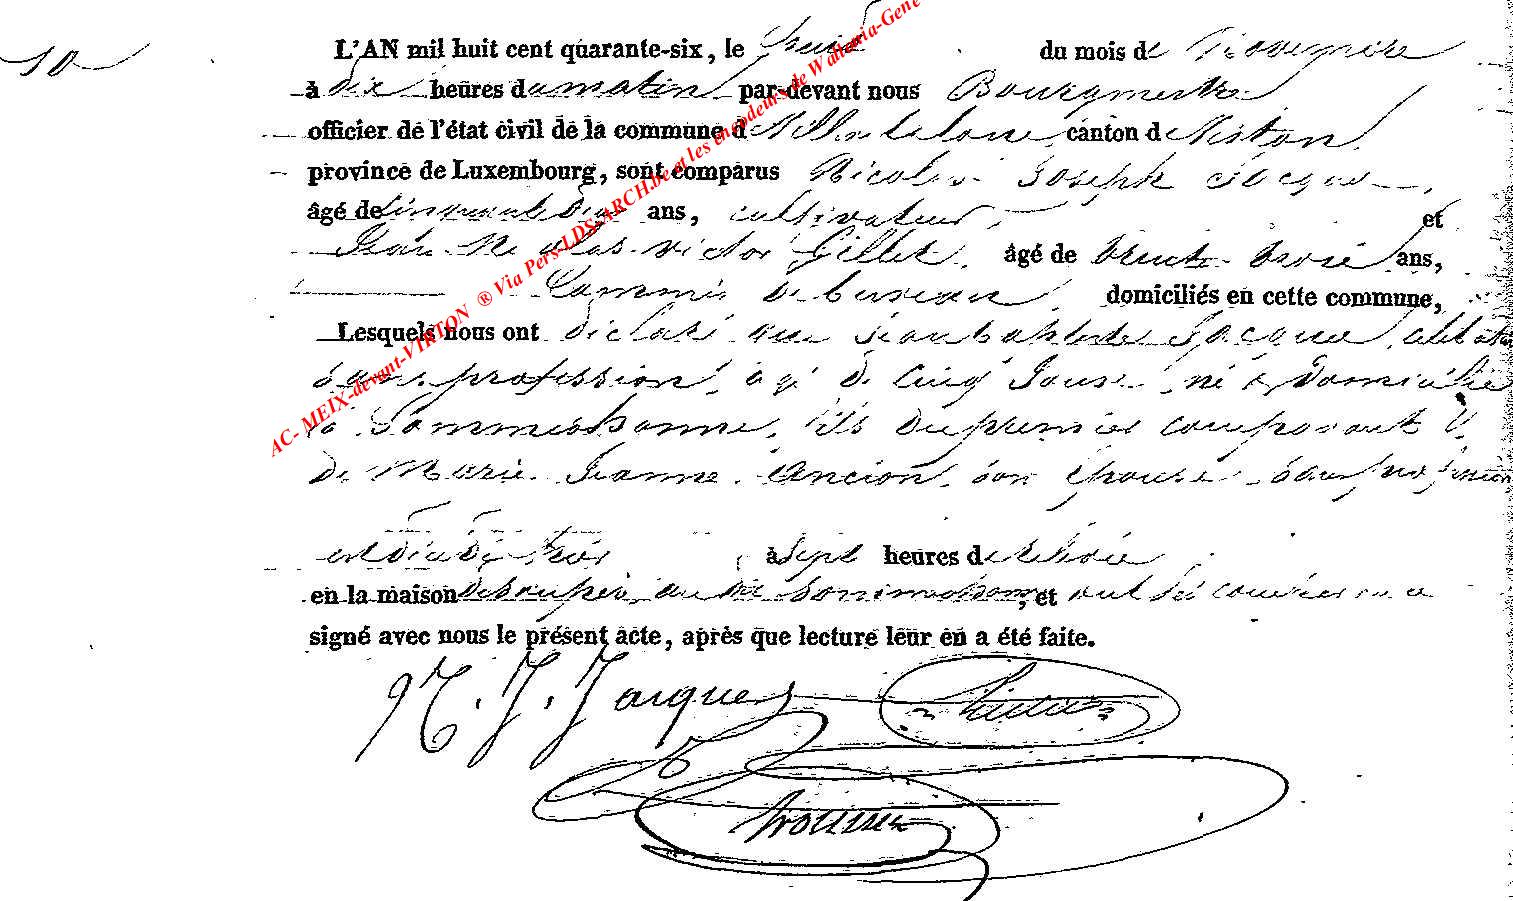 10
L'AN mil huit cent quarante-six, le huit du mois de Novembre
à dix heures du matin par-devant nous Bourgmestre
officier de l'état civil de la commune d Villers la loue canton d Virton
province de Luxembourg, sont comparus Nicolas Joseph Jacques
âgé de ans, cultivateur, et
Jean Nicolas Victor Gillet, âgé de trente trois ans,
Commis de bureau, domiciliés en cette commune,
Lesquels nous ont déclaré que Jean Jacques
sans profession, âgé de Cinq Jours né & Domicilié
à Sommethonne, fils du premier comparant &
de Marie Jeanne Ancion, son épouse sans profession
est décédé hier à Sept heures de
en la maison Sommethonne, et ont les
signé avec nous le présent acte, après que lecture leur en a été faite.
N. J. Jacques
AC- MEIX-devant-VIRTON ® Via Pers-LDS-ARCH.be et les encodeurs de Wallonia-Gene